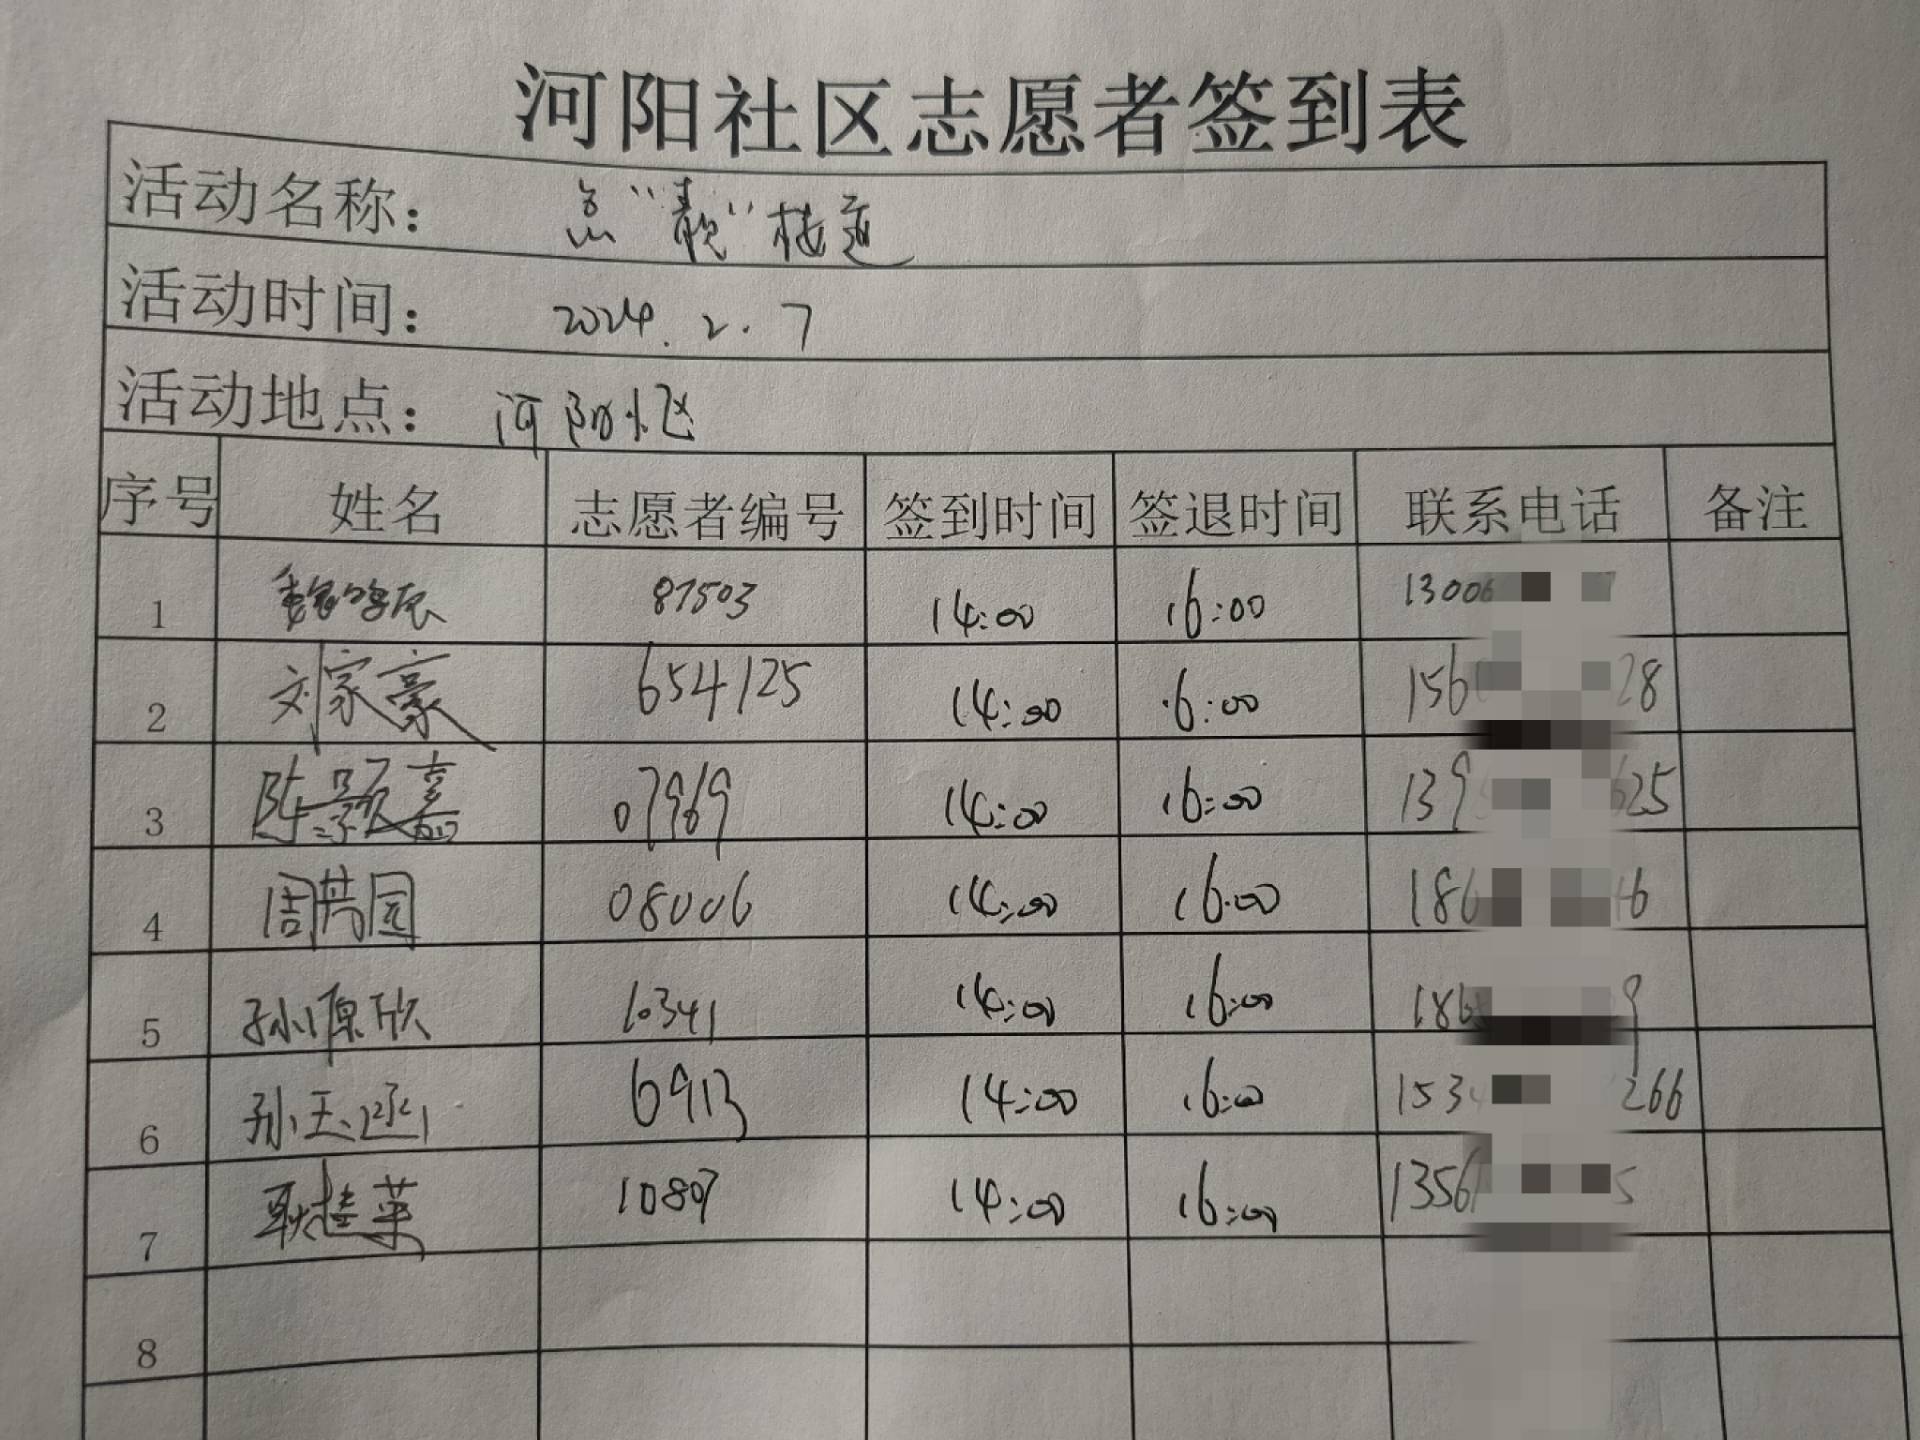 河阳社区志愿者签到表
活动名称： 点"靓"楼道
活动时间： 2024.2.7
活动地点： 河阳社区
序号 姓名 志愿者编号 签到时间 签退时间 联系电话 备注
1 87503 14:00 16:00 13006
2 刘家豪 654125 14:00 16:00 156 28
3 陈颢嘉 07969 14:00 16:00 139 625
4 周芮园 08006 14:00 16:00 186 46
5 孙源欣 10341 14:00 16:00 186 9
6 孙玉涵 6913 14:00 16:00 153 266
7 耿桂苹 10807 14:00 16:00 1356 5
8